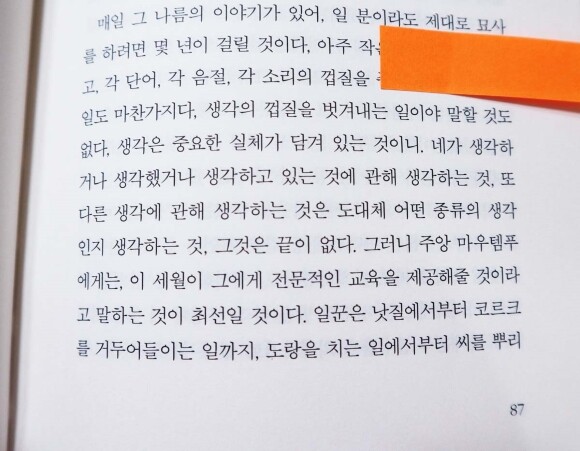 매일 그 나름의 이야기가 있어, 일 분이라도 제대로 묘사
를 하려면 몇 년이 걸릴 것이다, 아주 작은
고, 각 단어, 각 음절, 각 소리의 껍질을
일도 마찬가지다, 생각의 껍질을 벗겨내는 일이야 말할 것도
없다, 생각은 중요한 실체가 담겨 있는 것이니. 네가 생각하
거나 생각했거나 생각하고 있는 것에 관해 생각하는 것, 또
다른 생각에 관해 생각하는 것은 도대체 어떤 종류의 생각
인지 생각하는 것, 그것은 끝이 없다. 그러니 주앙 마우템푸
에게는, 이 세월이 그에게 전문적인 교육을 제공해줄 것이라
고 말하는 것이 최선일 것이다. 일꾼은 낫질에서부터 코르크
를 거두어들이는 일까지, 도랑을 치는 일에서부터 씨를 뿌리
87